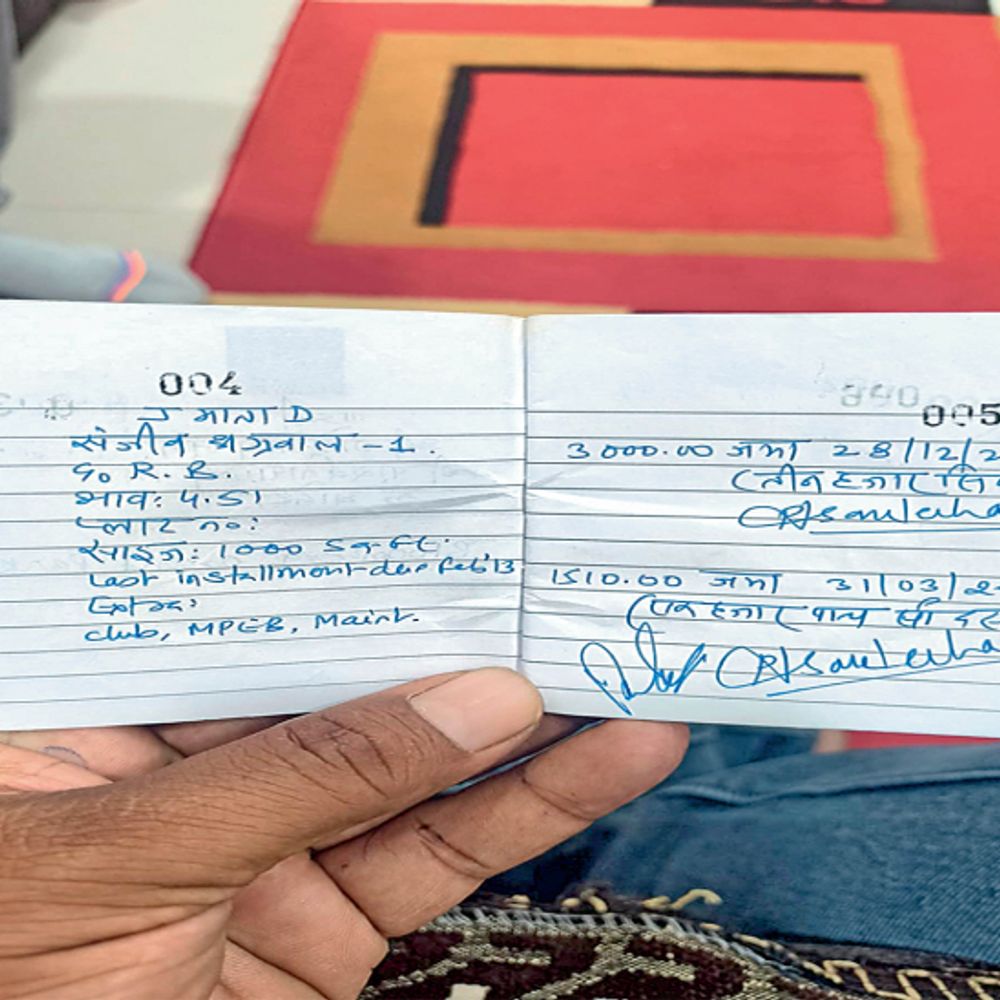 004
संजीव अग्रवाल -1.
% R. B.
भाव: 4.51
प्लाट no:
साइज: 1000 Sq.ft.
Last installment due Feb'13
Extra:
club, MPEB, Maint.
005
3000.00 जमा 28/12/2
(तीन हजार
1510.00 जमा 31/03/2
(एक हजार पाच सौ दस